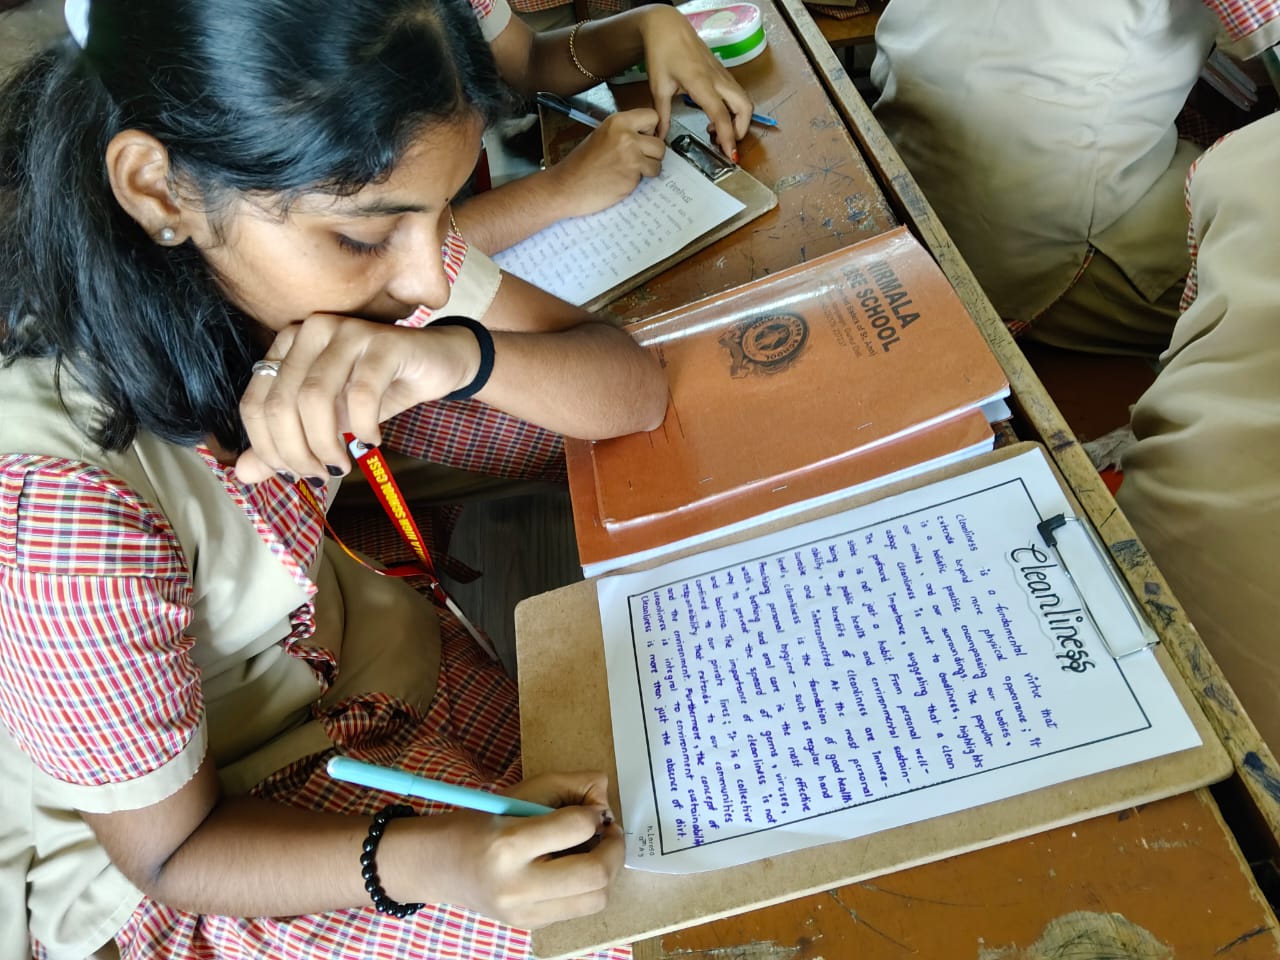 Cleanliness
Cleanliness is a fundamental virtue that
extends beyond mere physical apperance; it
is a holistic practise encompassing our bodies,
our minds and our surroundings. The popular
adage cleanliness is next to Godliness, highlights
the profound importance, suggesting that a clean
state is not just a habit. From personal well-
being to public health and environmental sustain-
ability, the benefits of cleanliness are immea-
surable and interconnected. At the most personal
level, cleanliness is the foundation of good health
Practising personal hygiene - such as regular hand
wash, bathing and oral care is the most effective
way to prevent the spread of germs, viruses,
and bacteria. The importance of cleanliness is not
confined to our private lives; it is a collective
responsibility that extends to our communities
and the environment. Furthermore, the concept of
cleanliness is integral to environment sustainability
Cleanliness is more than just the absence of dirt.
NIRMALA
SCHOOL
Cleanliness
HIGH SCHOOL CBSE